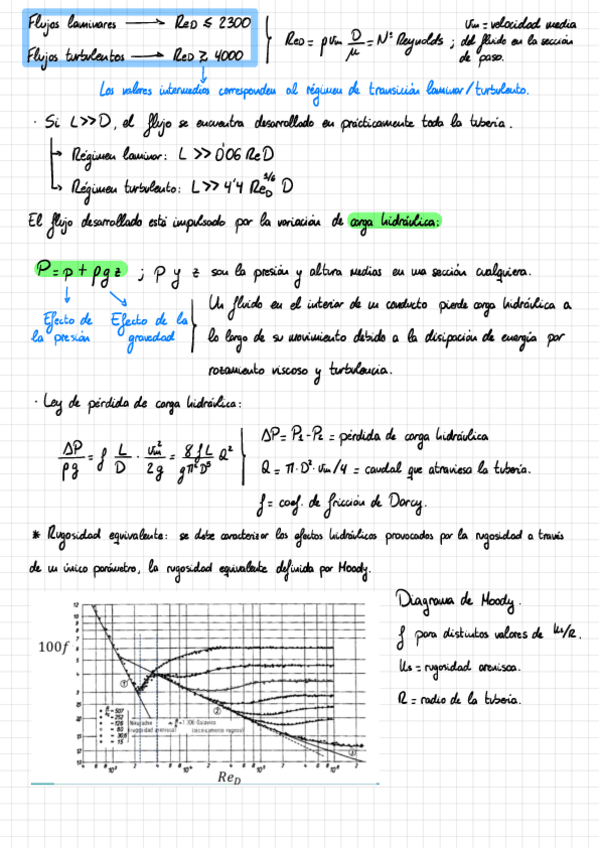 Flujos laminares → ReD ≤ 2300
Flujos turbulentos → ReD ≳ 4000
ReD = ρ vm D/μ = Nº Reynolds ; vm = velocidad media del fluido en la sección de paso.
Los valores intermedios corresponden al régimen de transición laminar/turbulento.
· Si L>>D, el flujo se encuentra desarrollado en prácticamente toda la tubería.
Régimen laminar: L >> 0'06 ReD
Régimen turbulento: L >> 4'4 ReD^1/6 D
El flujo desarrollado está impulsado por la variación de carga hidráulica:
P = p + ρgz ; p y z son la presión y altura medias en una sección cualquiera.
Efecto de la presión
Efecto de la gravedad
Un fluido en el interior de un conducto pierde carga hidráulica a
lo largo de su movimiento debido a la disipación de energía por
rozamiento viscoso y turbulencia.
· Ley de pérdida de carga hidráulica:
ΔP/ρg = f L/D · vm²/2g = 8fL/gπ²D⁵ Q²
ΔP = P1 - P2 = pérdida de carga hidráulica
Q = π · D² · vm/4 = caudal que atraviesa la tubería.
f = coef. de fricción de Darcy.
* Rugosidad equivalente: se debe caracterizar los efectos hidráulicos provocados por la rugosidad a través
de un único parámetro, la rugosidad equivalente definida por Moody.
Diagrama de Moody.
f para distintos valores de ks/R.
ks = rugosidad arenisca.
R = radio de la tubería.
100f
①
②
③
507
252
126
60
30,6
15
Nikuradse
(rugosidad arenisca)
ReD